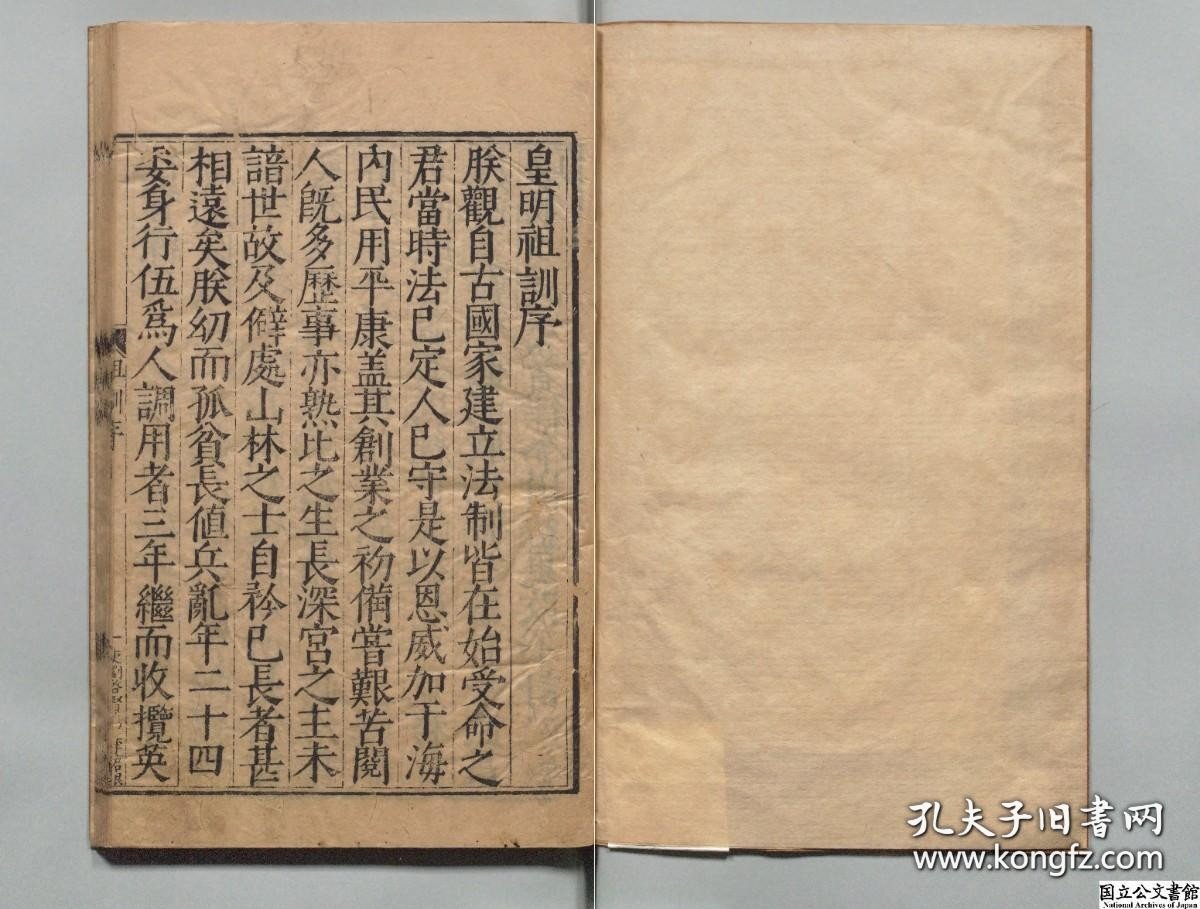 皇明祖訓序
朕觀自古國家建立法制皆在始受命之
君當時法已定人已守是以恩威加于海
內民用平康盖其創業之初備嘗艱苦閱
人既多歷事亦熟比之生長深宮之主未
諳世故及僻處山林之士自矜己長者甚
相遠矣朕幼而孤貧長值兵亂年二十四
委身行伍爲人調用者三年繼而收攬英
祖訓序
孔夫子旧书网
www.kongfz.com
国立公文書館
National Archives of Japan